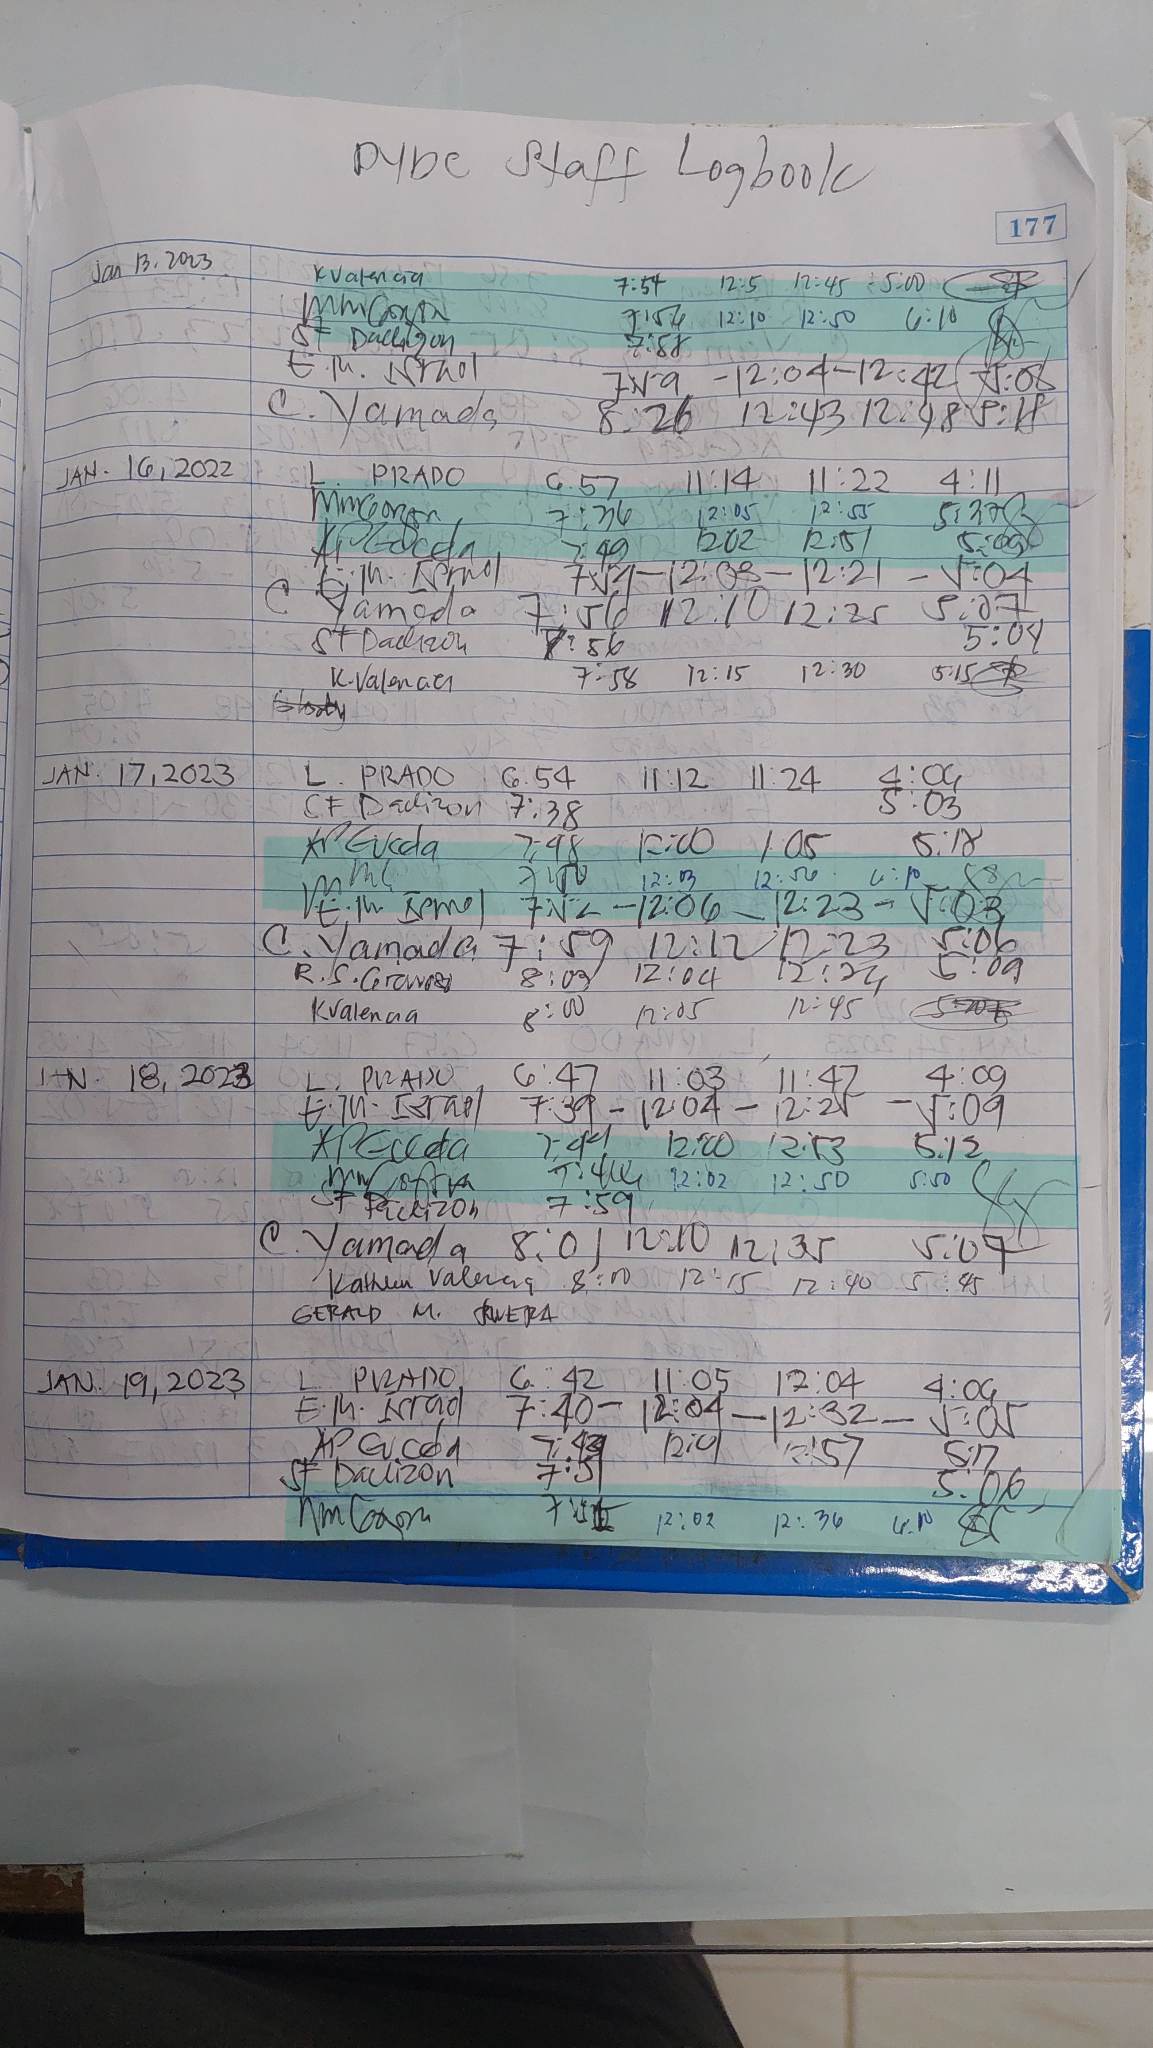 DYDC Staff Logbook
177
Jan 13, 2023 K Valencia 7:54 12:5 12:45 5:00
7:56 12:10 12:50 6:10
SF Dadizon 7:58
E.M. Israel 7:59 - 12:04 - 12:42 5:06
C. Yamada 8:26 12:43 12:48 5:18
JAN. 16, 2022 L. PRADO 6:57 11:14 11:22 4:11
7:36 12:05 12:55
7:49 12:02 12:51 5:09
E.M. Israel 12:08 - 12:21 - 5:04
C Yamada 7:56 12:10 12:25 5:07
SF Dadizon 7:56 5:04
K. Valencia 7:58 12:15 12:30 5:15
JAN. 17, 2023 L. PRADO 6:54 11:12 11:24 4:06
SF Dadizon 7:38 5:03
7:48 12:00 1:05 5:18
12:03 12:56 6:10
E.M. Israel 7:52 - 12:06 - 12:23 - 5:03
C. Yamada 7:59 12:12 12:23 5:06
R.S. 8:03 12:04 12:24 5:09
K Valencia 8:00 12:05 12:45
JAN. 18, 2023 L. PRADO 6:47 11:03 11:47 4:09
E.M. Israel 7:39 - 12:04 - 12:25 - 5:09
7:44 12:00 12:53 5:12
12:02 12:50 5:50
SF Dadizon 7:59
C. Yamada 8:01 12:10 12:35 5:07
Valencia 8:00 12:15 12:40 5:45
GERALD M. RIVERA
JAN. 19, 2023 L PRADO 6:42 11:05 12:04 4:06
E.M. Israel 7:40 - 12:04 - 12:32 - 5:05
12:01 12:57 5:17
SF Dadizon 7:51 5:06
12:02 12:36 6:10